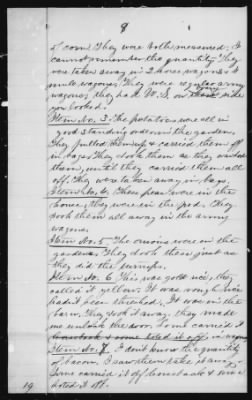 8
of corn. They were both measured. I
cannot remember the quantity. They
were taken away in 2 horse wagons & 4
mule wagons. They were regular army
wagons, they had U.S. on side
you looked.
Item No. 3. The potatoes were all in
good standing order in the garden.
They pulled them up & carried them off
in bags. They took them as they wanted
them, until they carried them all
off. They were taken away in bags.
Item No. 4. These peas were in the
house, they were in the pod. They
took them all away in the army
wagons.
Item No. 5 The onions were in the
garden. They took them just as
they did the turnips.
Item No. 6 This was gold rice, they
called it yellow. It was rough rice
hadn't been threshed. It was in the
barn. They took it away, they made
me unlock the door. Some carried it
horseback & some toted it off in wagons
Item No. 7. I don't know the quantity
of bacon. I saw them take it away.
Some carried it off horseback & some
toted it off.
19